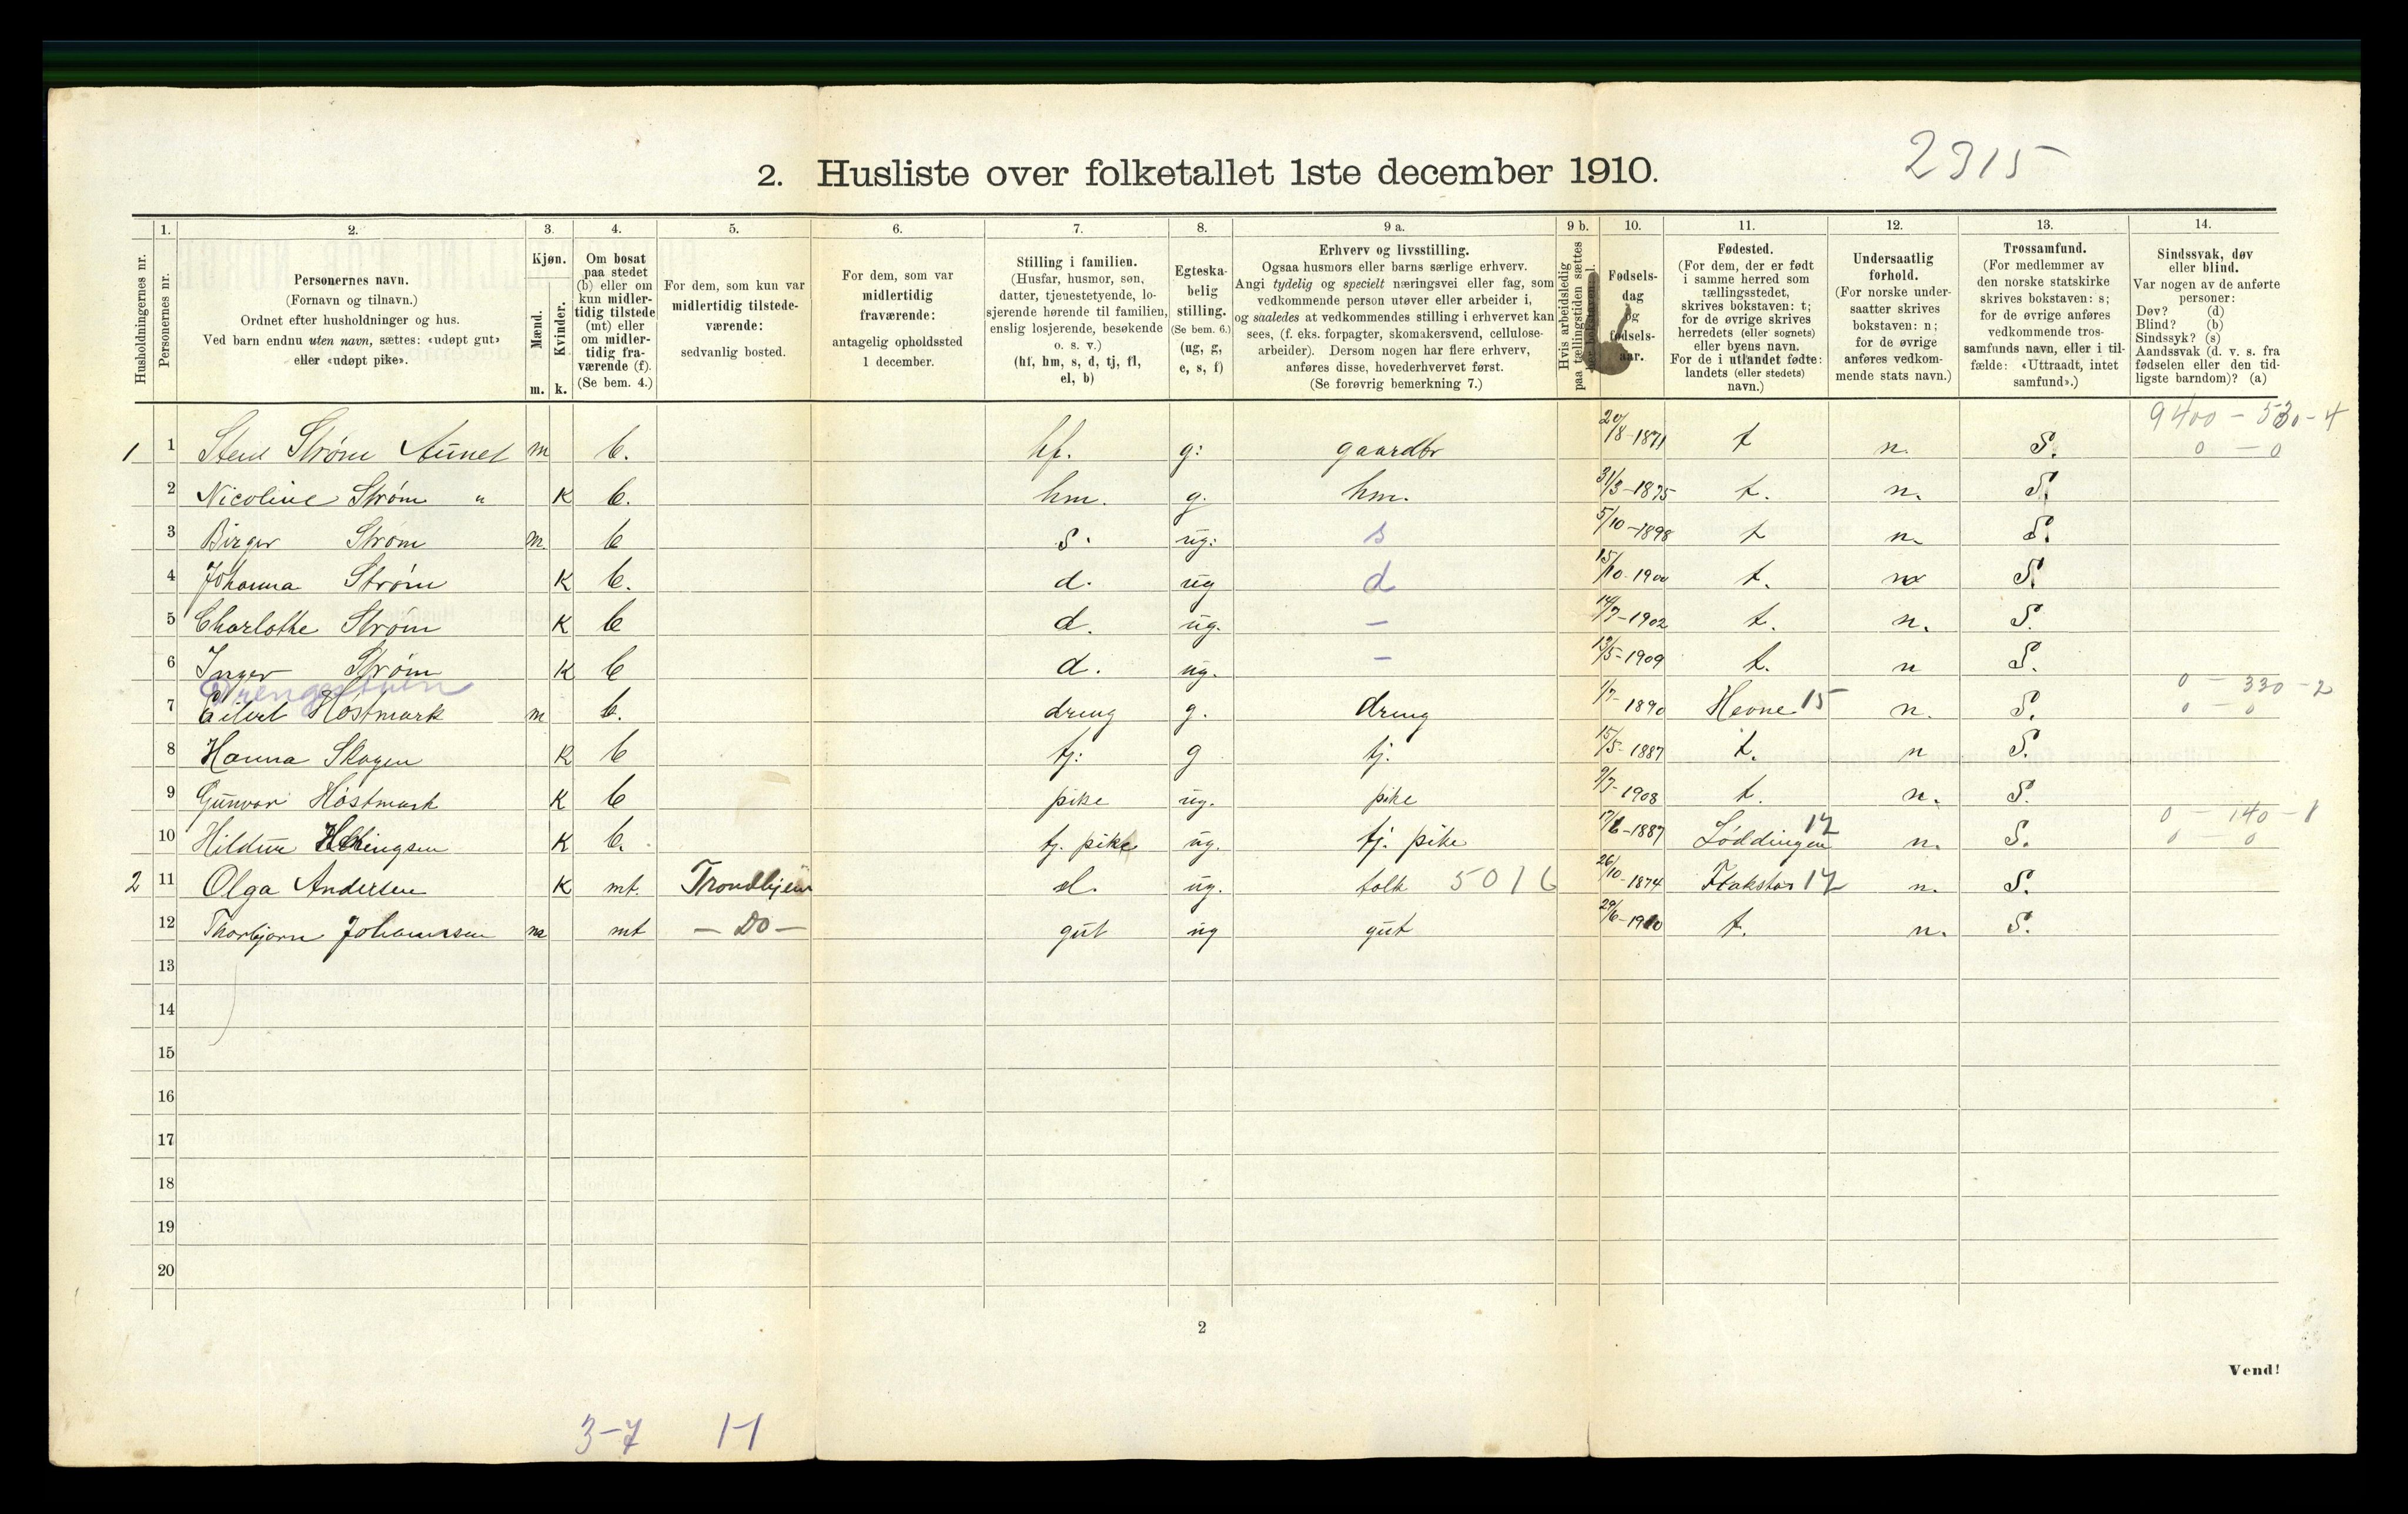 2. Husliste over folketallet 1ste december 1910.
2315
Husholdningernes nr.
1.
Personernes nr.
2.
Personernes navn.
(Fornavn og tilnavn.)
Ordnet efter husholdninger og hus.
Ved barn endnu uten navn, sættes: «udøpt gut»
eller «udøpt pike».
3.
Kjøn.
Mænd.
m.
Kvinder.
k.
4.
Om bosat
paa stedet
(b) eller om
kun midler-
tidig tilstede
(mt) eller
om midler-
tidig fra-
værende (f).
(Se bem. 4.)
5.
For dem, som kun var
midlertidig tilstede-
værende:
sedvanlig bosted.
6.
For dem, som var
midlertidig
fraværende:
antagelig opholdssted
1 december.
7.
Stilling i familien.
(Husfar, husmor, søn,
datter, tjenestetyende, lo-
sjerende hørende til familien,
enslig losjerende, besøkende
o. s. v.)
(hf, hm, s, d, tj, fl,
el, b)
8.
Egteska-
belig
stilling.
(Se bem. 6.)
(ug, g,
e, s, f)
9 a.
Erhverv og livsstilling.
Ogsaa husmors eller barns særlige erhverv.
Angi tydelig og specielt næringsvei eller fag, som
vedkommende person utøver eller arbeider i,
og saaledes at vedkommendes stilling i erhvervet kan
sees, (f. eks. forpagter, skomakersvend, cellulose-
arbeider). Dersom nogen har flere erhverv,
anføres disse, hovederhvervet først.
(Se forøvrig bemerkning 7.)
9 b.
Hvis arbeidsledig
paa tællingstiden sættes
her bokstaven: l.
10.
Fødsels-
dag
og
fødsels-
aar.
11.
Fødested.
(For dem, der er født
i samme herred som
tællingsstedet,
skrives bokstaven: t;
for de øvrige skrives
herredets (eller sognets)
eller byens navn.
For de i utlandet fødte:
landets (eller stedets)
navn.)
12.
Undersaatlig
forhold.
(For norske under-
saatter skrives
bokstaven: n;
for de øvrige
anføres vedkom-
mende stats navn.)
13.
Trossamfund.
(For medlemmer av
den norske statskirke
skrives bokstaven: s;
for de øvrige anføres
vedkommende tros-
samfunds navn, eller i til-
fælde: «Uttraadt, intet
samfund».)
14.
Sindssvak, døv
eller blind.
Var nogen av de anførte
personer:
Døv? (d)
Blind? (b)
Sindssyk? (s)
Aandssvak (d. v. s. fra
fødselen eller den tid-
ligste barndom)? (a)
9400 - 530 - 4
1 1 Strøm Aunet m b. hf. g: gaardbr 20/8-1871 t n. S. 0 - 0
2 Nicoline Strøm " K b. hm. g. hm. 31/3-1875 t. n. S.
3 Birger Strøm m. b s. ug: s 5/10-1898 t n. S.
4 Johanna Strøm K b. d. ug d 15/10-1900 t. n S.
5 Charlothe Strøm K b d. ug. - 14/7-1902 t. n. S.
6 Inger Strøm K b d. ug. - 13/5-1909 t. n S.
Drengestuen 0 - 330 - 2
7 Eilert Høstmark m b. dreng g. dreng 1/7-1890 Hevne 15 n. S. 0 - 0
8 Hanna Skogen K b tj: g tj. 15/5-1887 t. n S.
9 Gunvor Høstmark K b pike ug. pike 9/7-1908 t. n. S.
0 - 140 - 1
10 Hildur K b. tj. pike ug. tj. pike 17/6-1887 Løddingen 17 n. S. 0 - 0
2 11 Olga Andersen K mt. Trondhjem el. ug. tolk 5016 26/10-1874 17 n. S.
12 Thorbjørn Johannesen m mt - Do - gut ug gut 29/6-1910 t. n. S.
13
14
15
16
17
18
19
20
2
Vend!
3-7 1-1